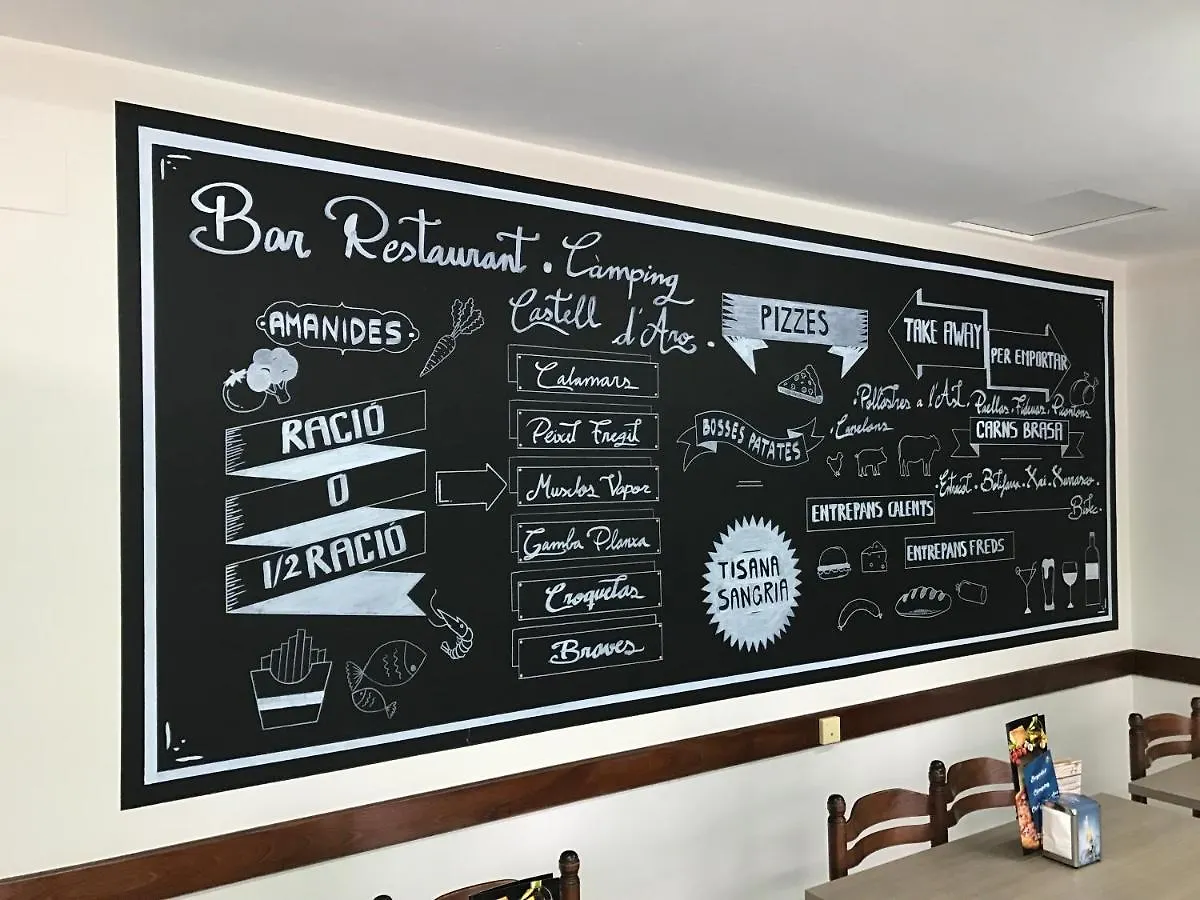 Bar Restaurant . Càmping
Castell
d'Aro.
AMANIDES
RACIÓ
O
1/2 RACIÓ
Calamars
Peixet Fregit
Musclos Vapor
Gamba Planxa
Croquetas
Braves
PIZZES
BOSSES PATATES
TISANA
SANGRIA
TAKE AWAY
PER EMPORTAR
.Pollastres a l'Ast. Paellas. Fideuas. Picantons
.Canelons
CARNS BRASA
.Entrecot. Botifarra. Xai. Xurrasco.
Bistec.
ENTREPANS CALENTS
ENTREPANS FREDS